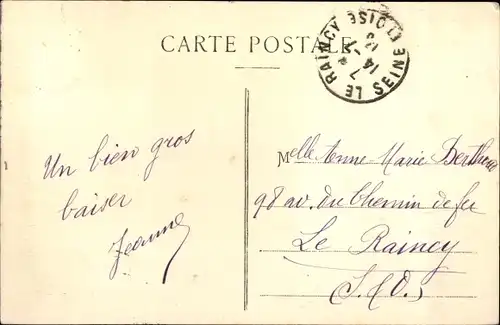 CARTE POSTALE
LE RAINCY
SEINE ET OISE
14 - 7
Un bien gros
baiser
Jeanne
Melle Anne-Marie
98 av. du Chemin de fer
Le Raincy
(S. & O.)